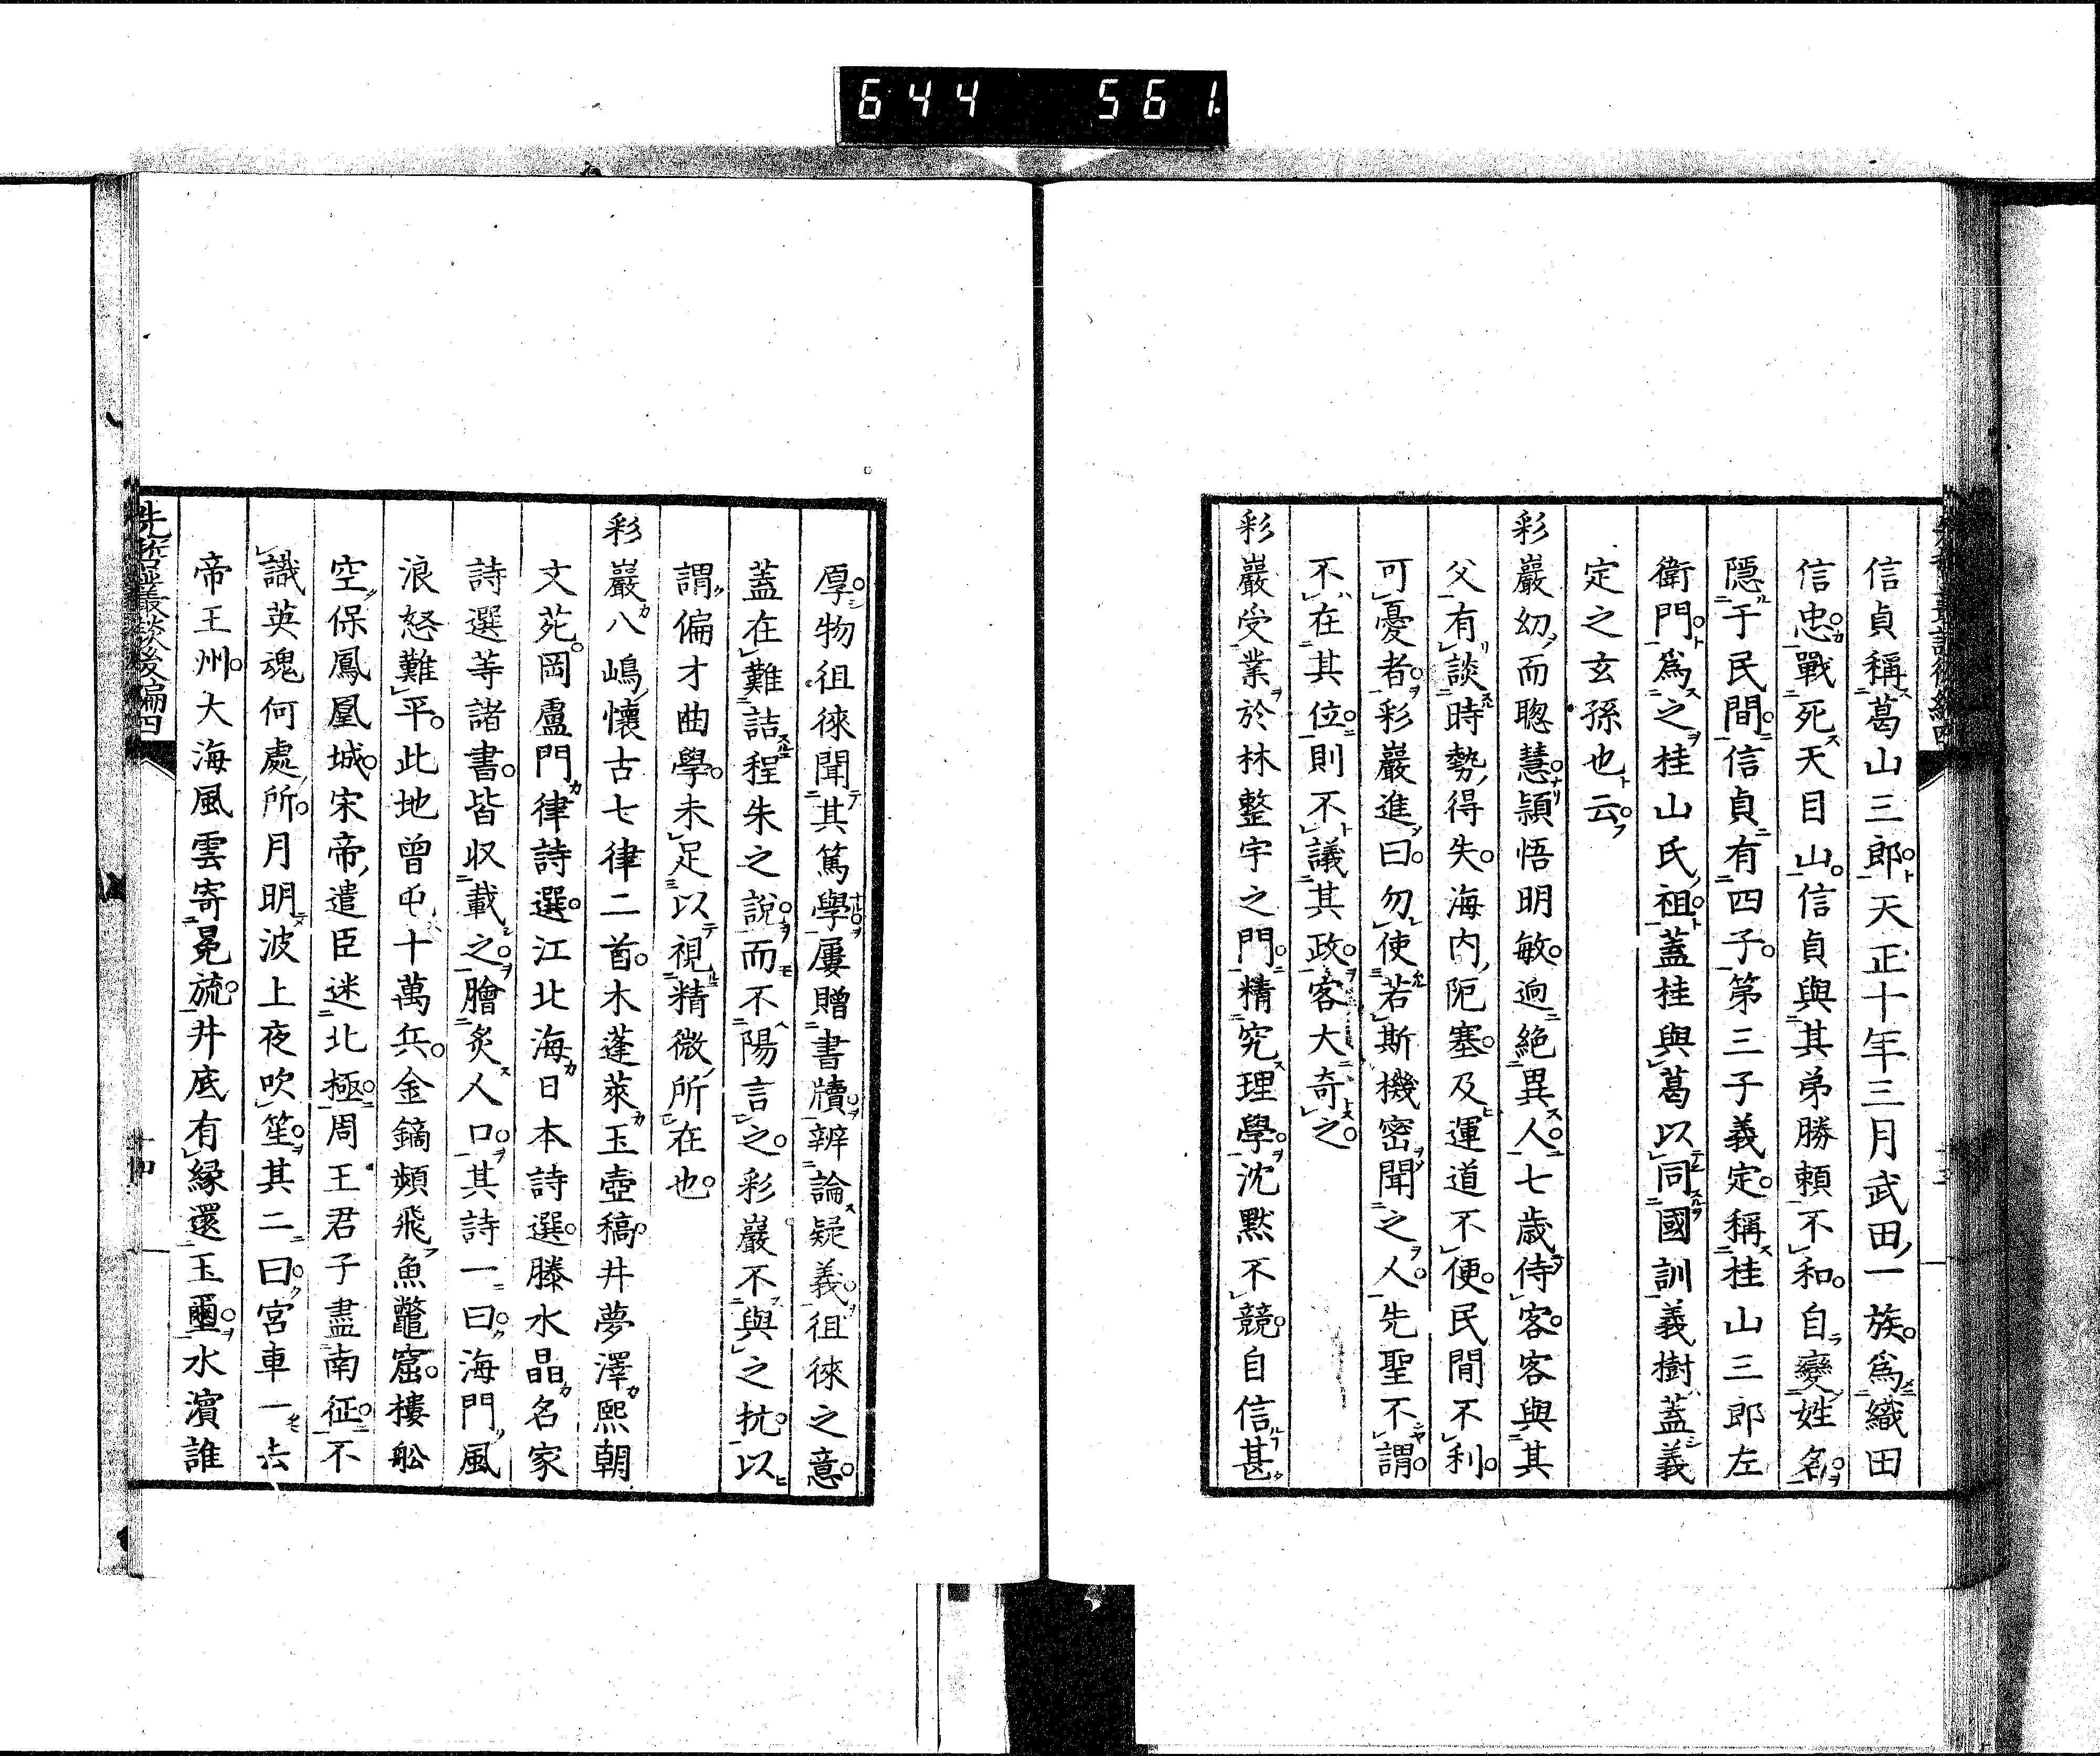 644 561
信貞稱葛山三郎天正十年三月武田一族爲織田
信忠戰死天目山信貞與其弟勝賴不和自變姓名
隱于民間信貞有四子第三子義定稱桂山三郎左
衛門爲之桂山氏祖蓋桂與葛以同國訓義樹蓋義
定之玄孫也云
彩巖幼而聰慧頴悟明敏逈絕異人七歳侍客客與其
父有談時勢得失海内阨塞及運道不便民間不利
可憂者彩巖進曰勿使若斯機密聞之人先聖不謂
不在其位則不議其政客大奇之
彩巖受業於林整宇之門精究理學沈默不競自信甚
厚物徂徠聞其篤學屢贈書牘辨論疑義徂徠之意
蓋在難詰程朱之說而不陽言之彩巖不與之抗以
謂偏才曲學未足以視精微所在也
彩巖八嶋懷古七律二首木蓬萊玉壺稿井夢澤熙朝
文苑岡盧門律詩選江北海日本詩選滕水晶名家
詩選等諸書皆収載之膾炙人口其詩一曰海門風
浪怒難平此地曾屯十萬兵金鏑頻飛魚鼈窟樓船
空保鳳凰城宋帝遣臣迷北極周王君子盡南征不
識英魂何處所月明波上夜吹笙其二曰宮車一去
帝王州大海風雲寄冕旒井底有緣還玉璽水濱誰
先哲叢談後編四
十四